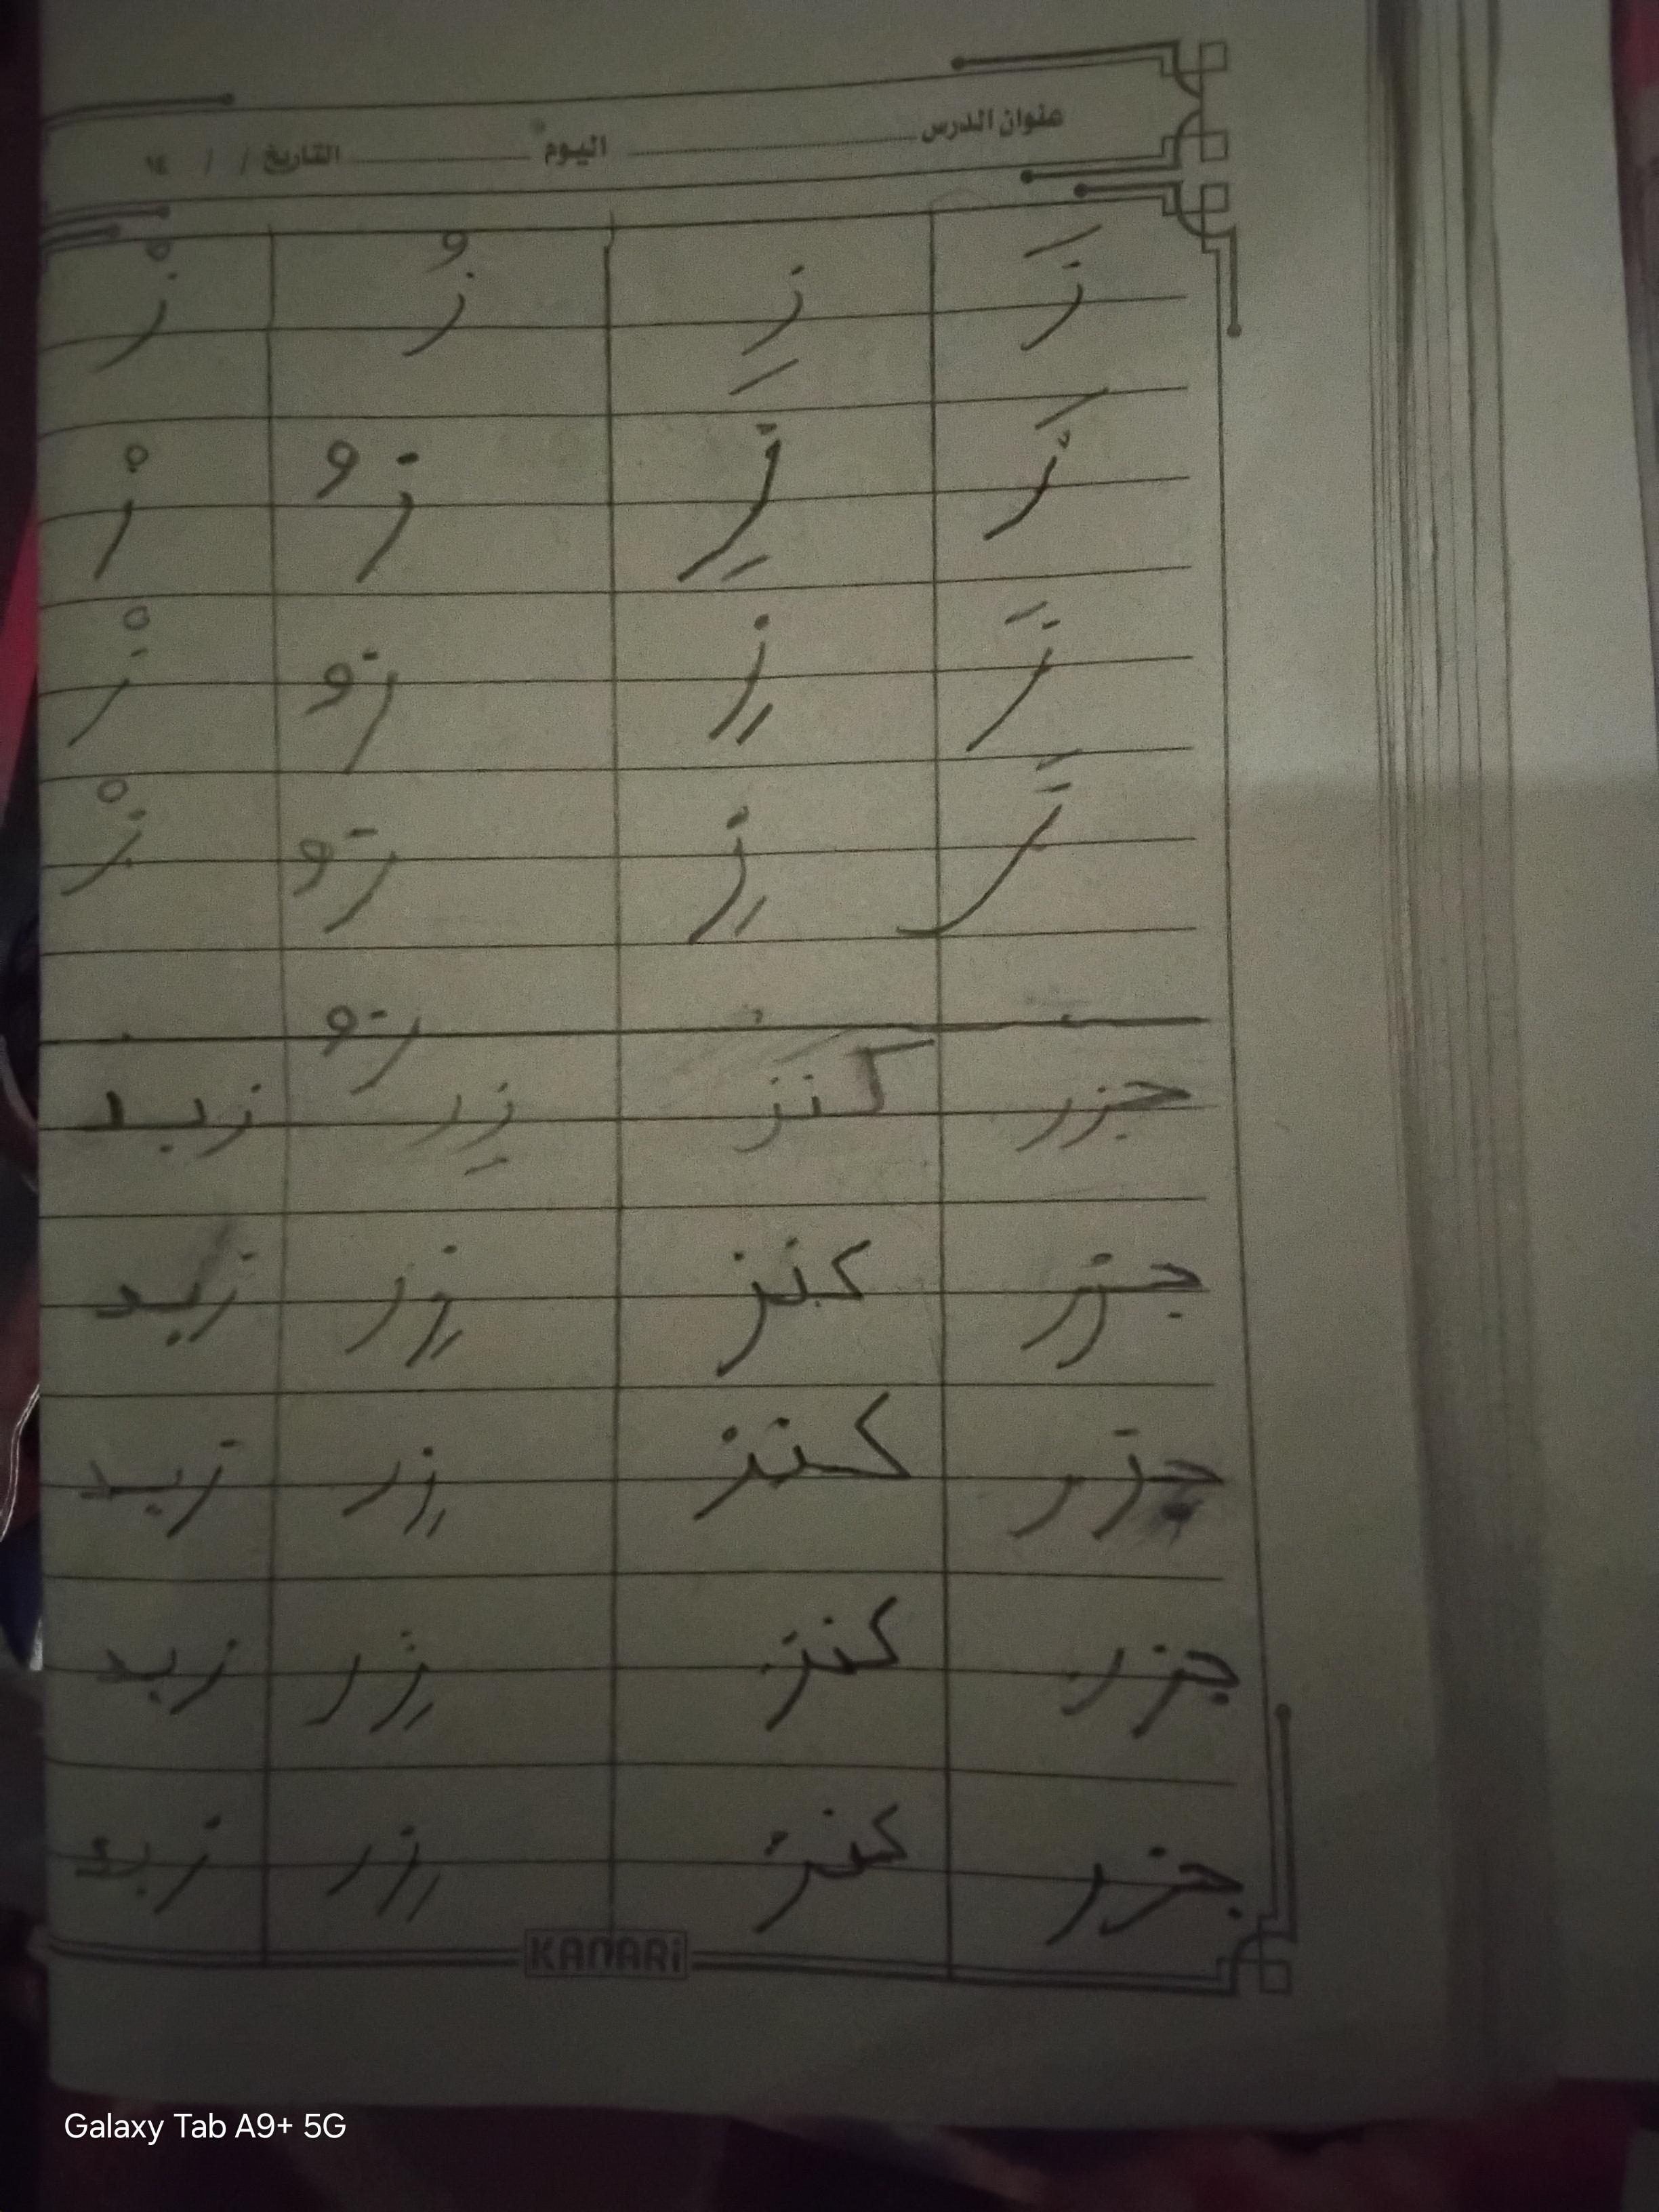 عنوان الدرس اليوم التاريخ / / ١٤
زَ زِ زُ زْ
زَ زِ زُ زْ
زَ زِ زُ زْ
زَ زِ زُ زْ
زُ
جزر كنز زِر زبد
جزر كنز زِر زبد
جزر كنز زِر زبد
جزر كنز زِر زبد
جزر كنز زِر زبد
KANARi
Galaxy Tab A9+ 5G